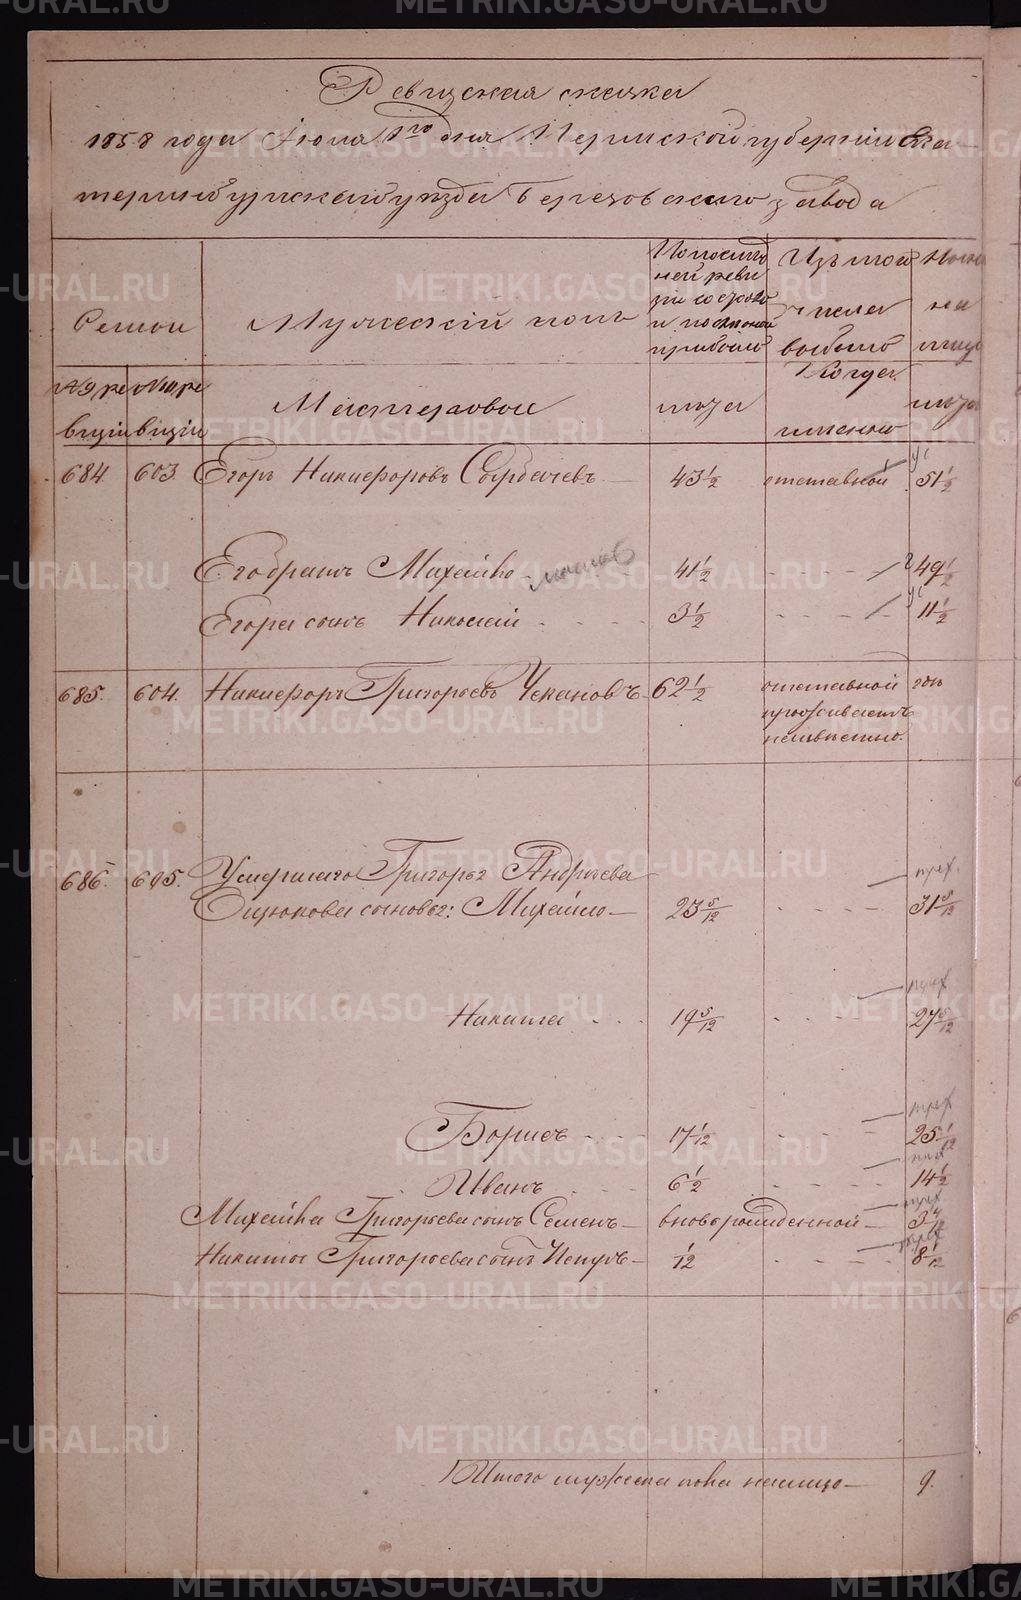 Ревизская сказка
1858 года Июля 1го дня Пермской губернии Ека-
теринбургскаго уезда Березовскаго завода
Семьи
Мужеский полъ
По послед
ней реви
зии состояло
и после оной
прибыло
Изъ того
числа
выбыло
Ныне
на
лицо
Мастеровые
лета
Когда
именно
лета
684. 603. Егоръ Никифоровъ Сырбачевъ 43 1/2 отставной 51 1/2
Его братъ Михайло 41 1/2 49 1/2
Егора сынъ Николай 3 1/2 11 1/2
685. 604. Никифоръ Григорьевъ Чекановъ 62 1/2 отставной
проживаетъ
неизвестно.
686. 605. Умершаго Григорья Андреева
Бирюкова сыновья: Михайло 23 5/12 31 5/12
Никита 19 5/12 27 5/12
Борисъ 17 1/12 25 1/12
Иванъ 6 1/2 14 1/2
Михайла Григорьева сынъ Семенъ вноворожденной 3
Никиты Григорьева сынъ Петръ 1/12 8 1/12
Итого мужеска пола налицо 9.
METRIKI.GASO-URAL.RU